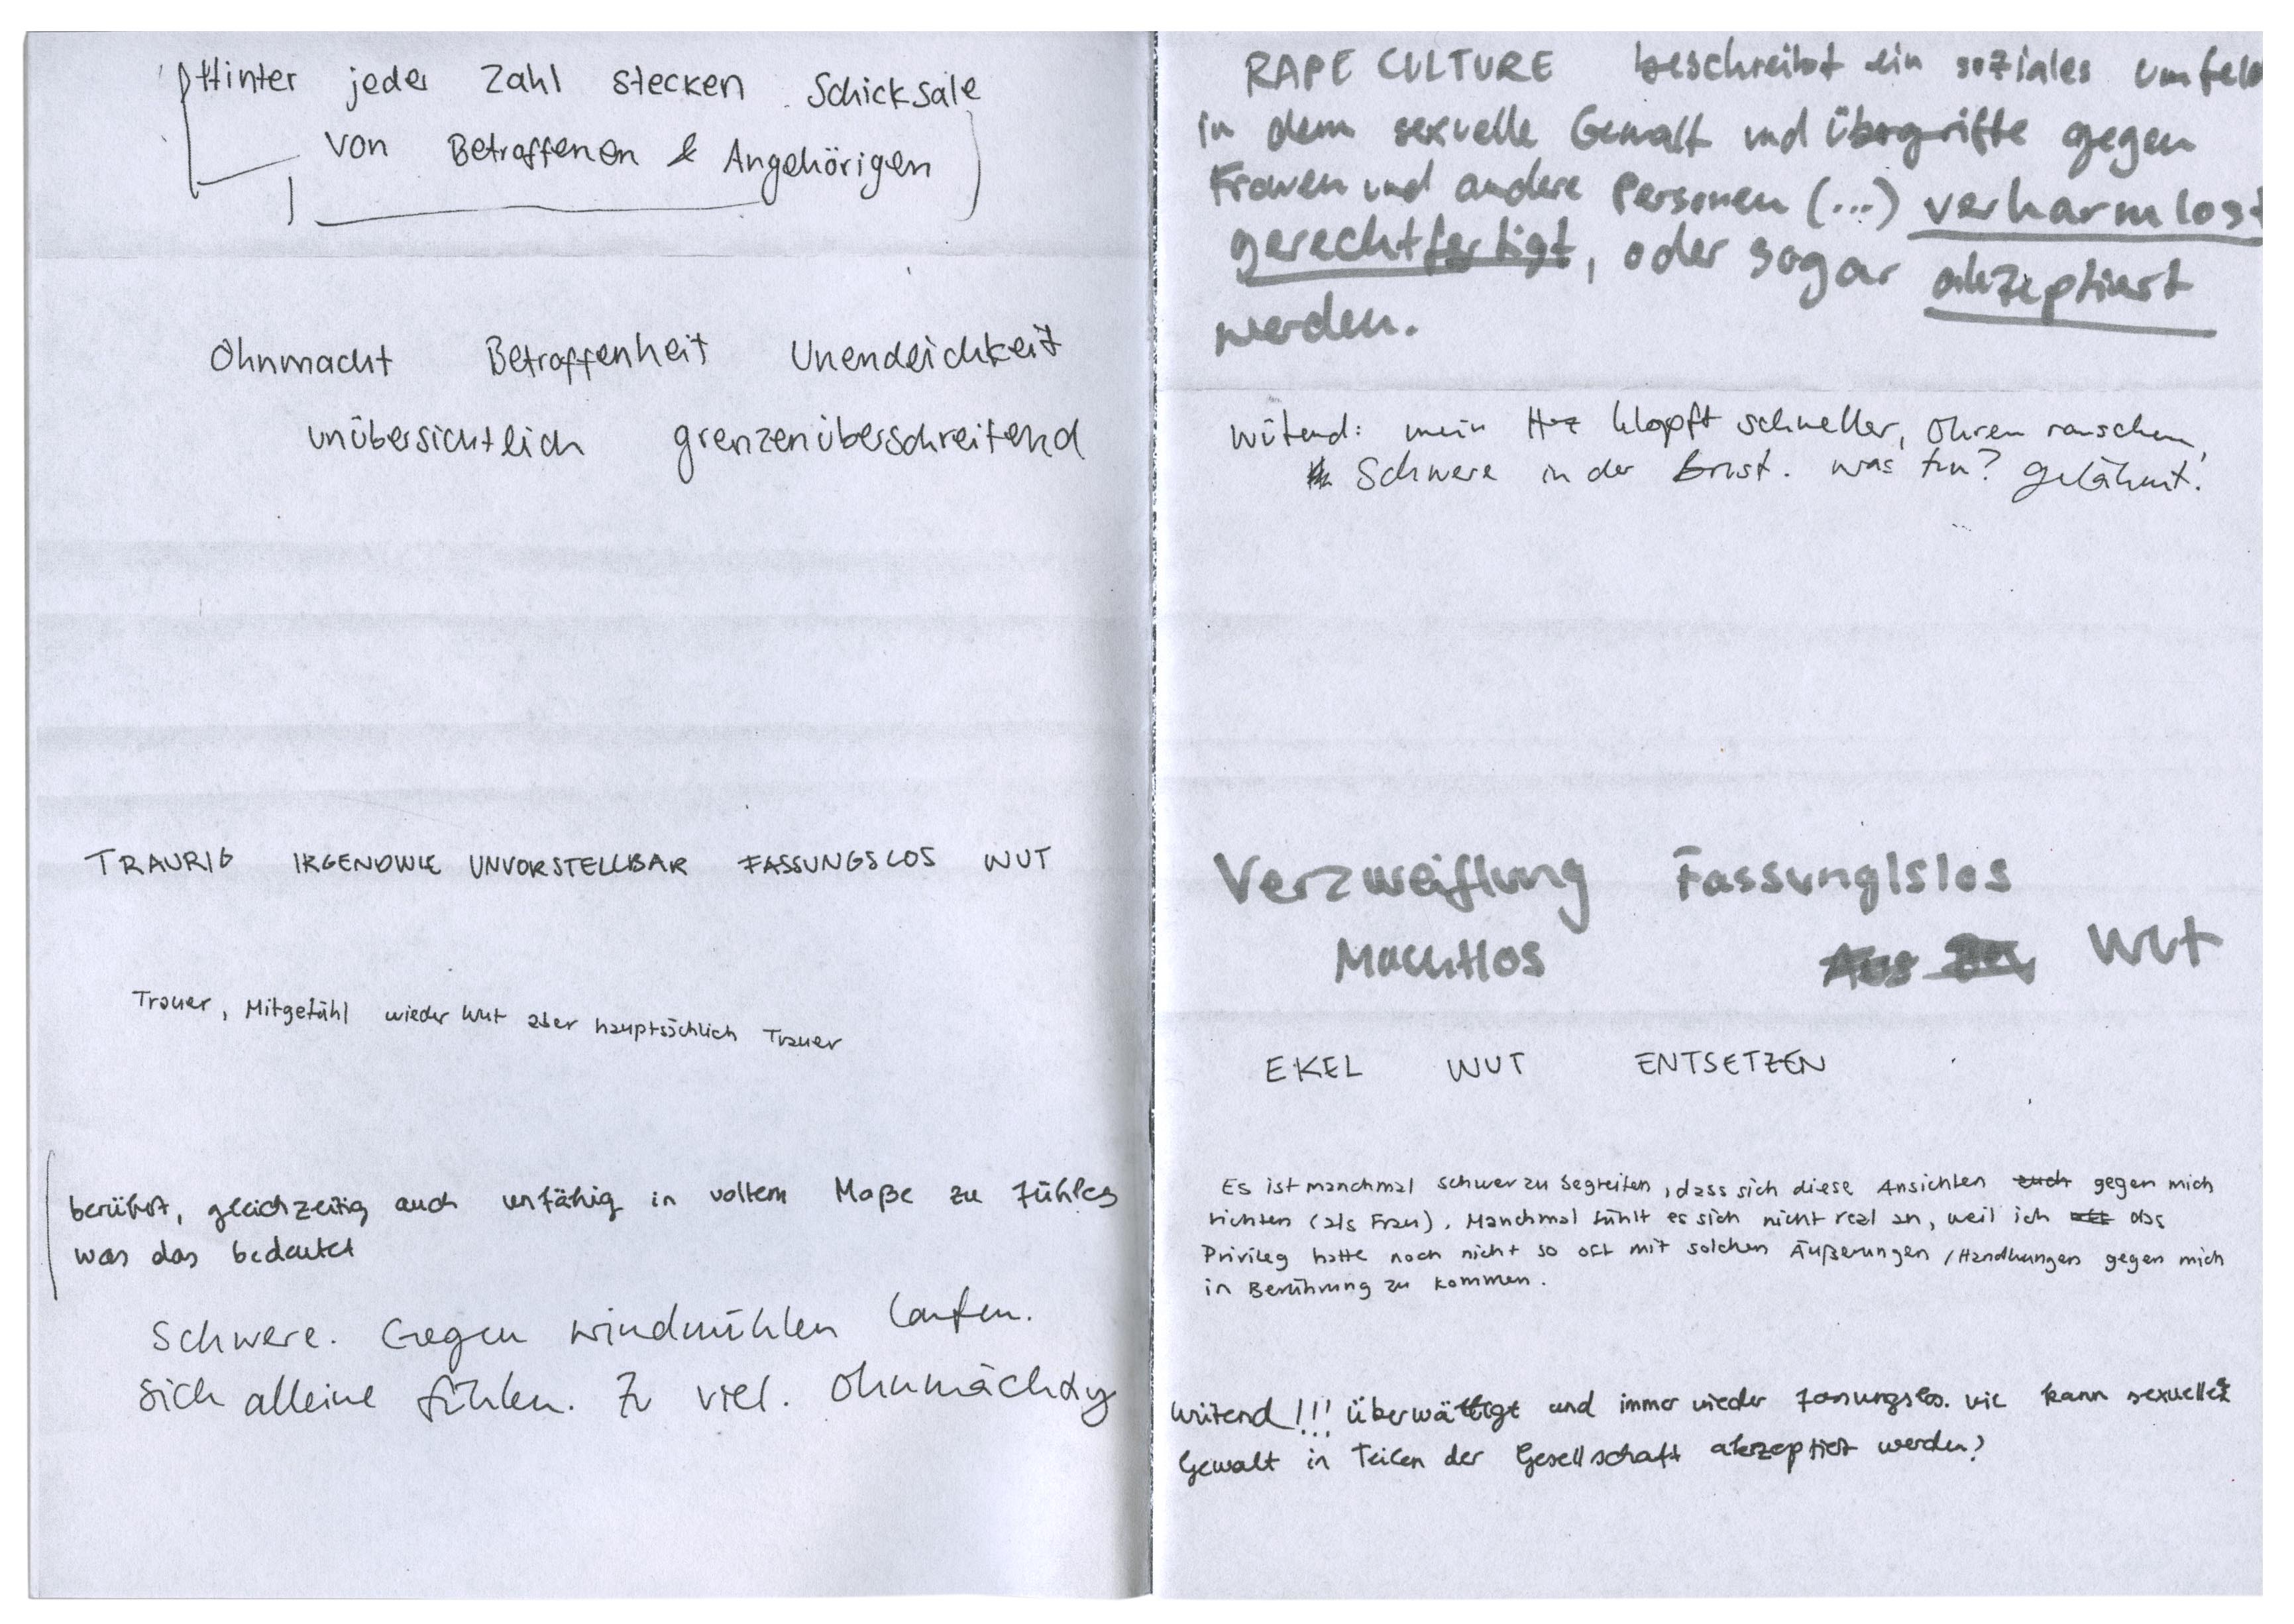 Hinter jeder Zahl stecken Schicksale
von Betroffenen & Angehörigen
Ohnmacht Betroffenheit Unendlichkeit
unübersichtlich grenzenüberschreitend
TRAURIG IRGENDWIE UNVORSTELLBAR FASSUNGSLOS WUT
Trauer, Mitgefühl wieder Wut aber hauptsächlich Trauer
berührt, gleichzeitig auch unfähig in vollem Maße zu fühlen
was das bedeutet
Schwere. Gegen Windmühlen laufen.
Sich alleine fühlen. Zu viel. Ohnmächtig
RAPE CULTURE beschreibt ein soziales Umfeld
in dem sexuelle Gewalt und Übergriffe gegen
Frauen und andere Personen (...) verharmlost
gerechtfertigt, oder sogar akzeptiert
werden.
Wütend: mein Herz klopft schneller, Ohren rauschen,
Schwere in der Brust. was tun? gelähmt.
Verzweiflung Fassung1slos
Machtlos Aus Wut
EKEL WUT ENTSETZEN
Es ist manchmal schwer zu begreifen, dass sich diese Ansichten auch gegen mich
richten (als Frau). Manchmal fühlt es sich nicht real an, weil ich das
Privileg hatte noch nicht so oft mit solchen Äußerungen / Handlungen gegen mich
in Berührung zu kommen.
Wütend!!! Überwältigt und immer wieder fassungslos. wie kann sexuelle
Gewalt in Teilen der Gesellschaft akzeptiert werden?